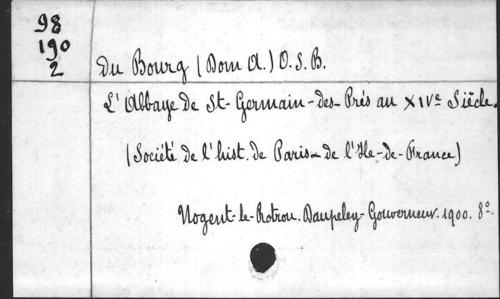 98
190
2
Du Bourg (Dom A.) O.S.B.
L'Abbaye de St-Germain-des-Prés au XIVe Siècle,
(Société de l'hist. de Paris - de l'Ile-de-France)
Nogent-le-Rotrou. Daupeley-Gouverneur. 1900. 8º.